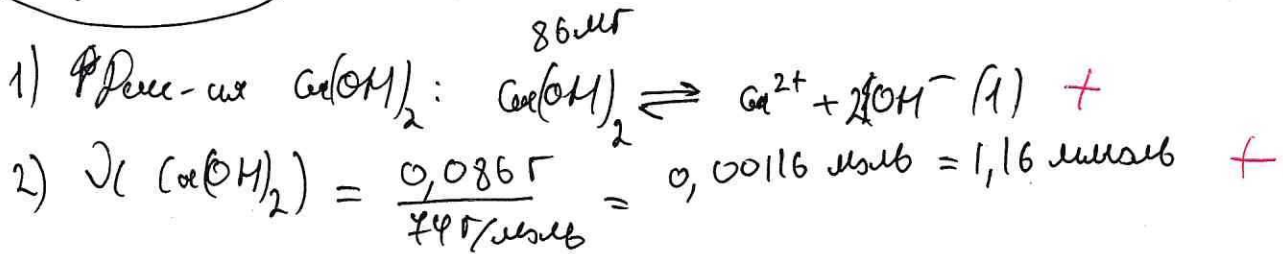 86 мг
1) Дисс-ия Ca(OH)₂ : Ca(OH)₂ ⇌ Ca²⁺ + 2OH⁻ (1) +
2) ν(Ca(OH)₂) = 0,086 г / 74 г/моль = 0,00116 моль = 1,16 ммоль +